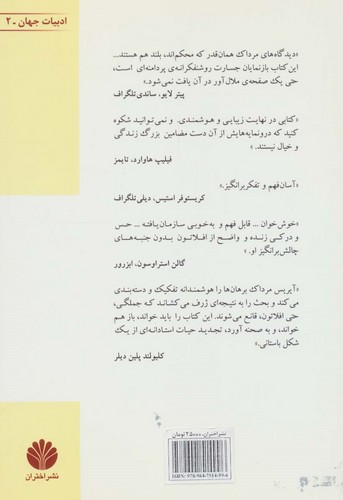 ادبیات جهان - ۲
«دیدگاه‌های مرداک همان‌قدر که محکم‌اند، بلند هم هستند...
این کتاب بازنمایان جسارت روشنفکرانه‌ی پردامنه‌ای است،
حتی یک صفحه‌ی ملال‌آور در آن یافت نمی‌شود.»
پیتر لایو، ساندی تلگراف
«کتابی در نهایت زیبایی و هوشمندی. و نمی‌توانید شکوه
کنید که درونمایه‌هایش از آن دست مضامین بزرگ زندگی
و خیال نیستند.»
فیلیپ هاوارد، تایمز
«آسان‌فهم و تفکربرانگیز.»
کریستوفر استیس، دیلی تلگراف
«خوش‌خوان ... قابل فهم و به‌خوبی سازمان‌یافته ... حس
و درکی زنده و واضح از افلاتون بدون جنبه‌های
چالش‌برانگیز او.»
گالن استراوسون، ابزرور
«آیریس مرداک برهان‌ها را هوشمندانه تفکیک و دسته‌بندی
می‌کند و بحث را به نتیجه‌ای ژرف می‌کشاند که جملگی،
حتی افلاتون، قانع می‌شوند. این کتاب را باید خواند، باز هم
خواند، و به صحنه آورد، تجدید حیات استادانه‌ای از یک
شکل باستانی.»
کلیولند پلین دیلر
نشر اختران